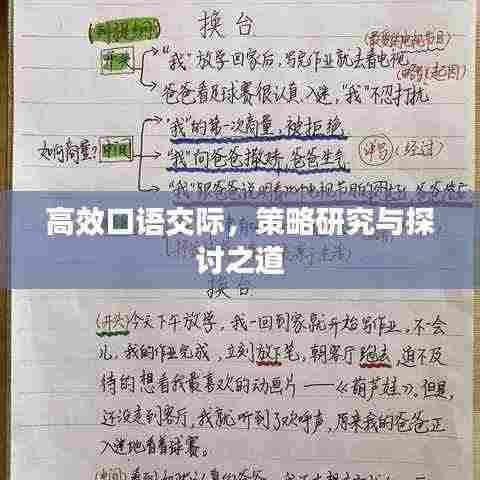 换台
开头
"我"放学回家后，写完作业就去看电视
（最爱的电视节目）
（略写）（起因）
爸爸看足球赛很认真、入迷，"我"不忍打扰
"我"的第一次商量，被拒绝
如何商量？
中间
"我"向爸爸撒娇，爸爸生气
详写（经过）
高效口语交际，策略研究与探
讨之道
换台
（开头）今天下午放学，我一回到家就开始写作业，不一会
儿，我的作业完成，立刻放下笔，朝客厅跑去，迫不及
待的想看我最喜欢的动画片——《葫芦娃》。但是，
还没走到客厅，我就听到了欢呼声，原来我的爸爸正
入迷地看着球赛。